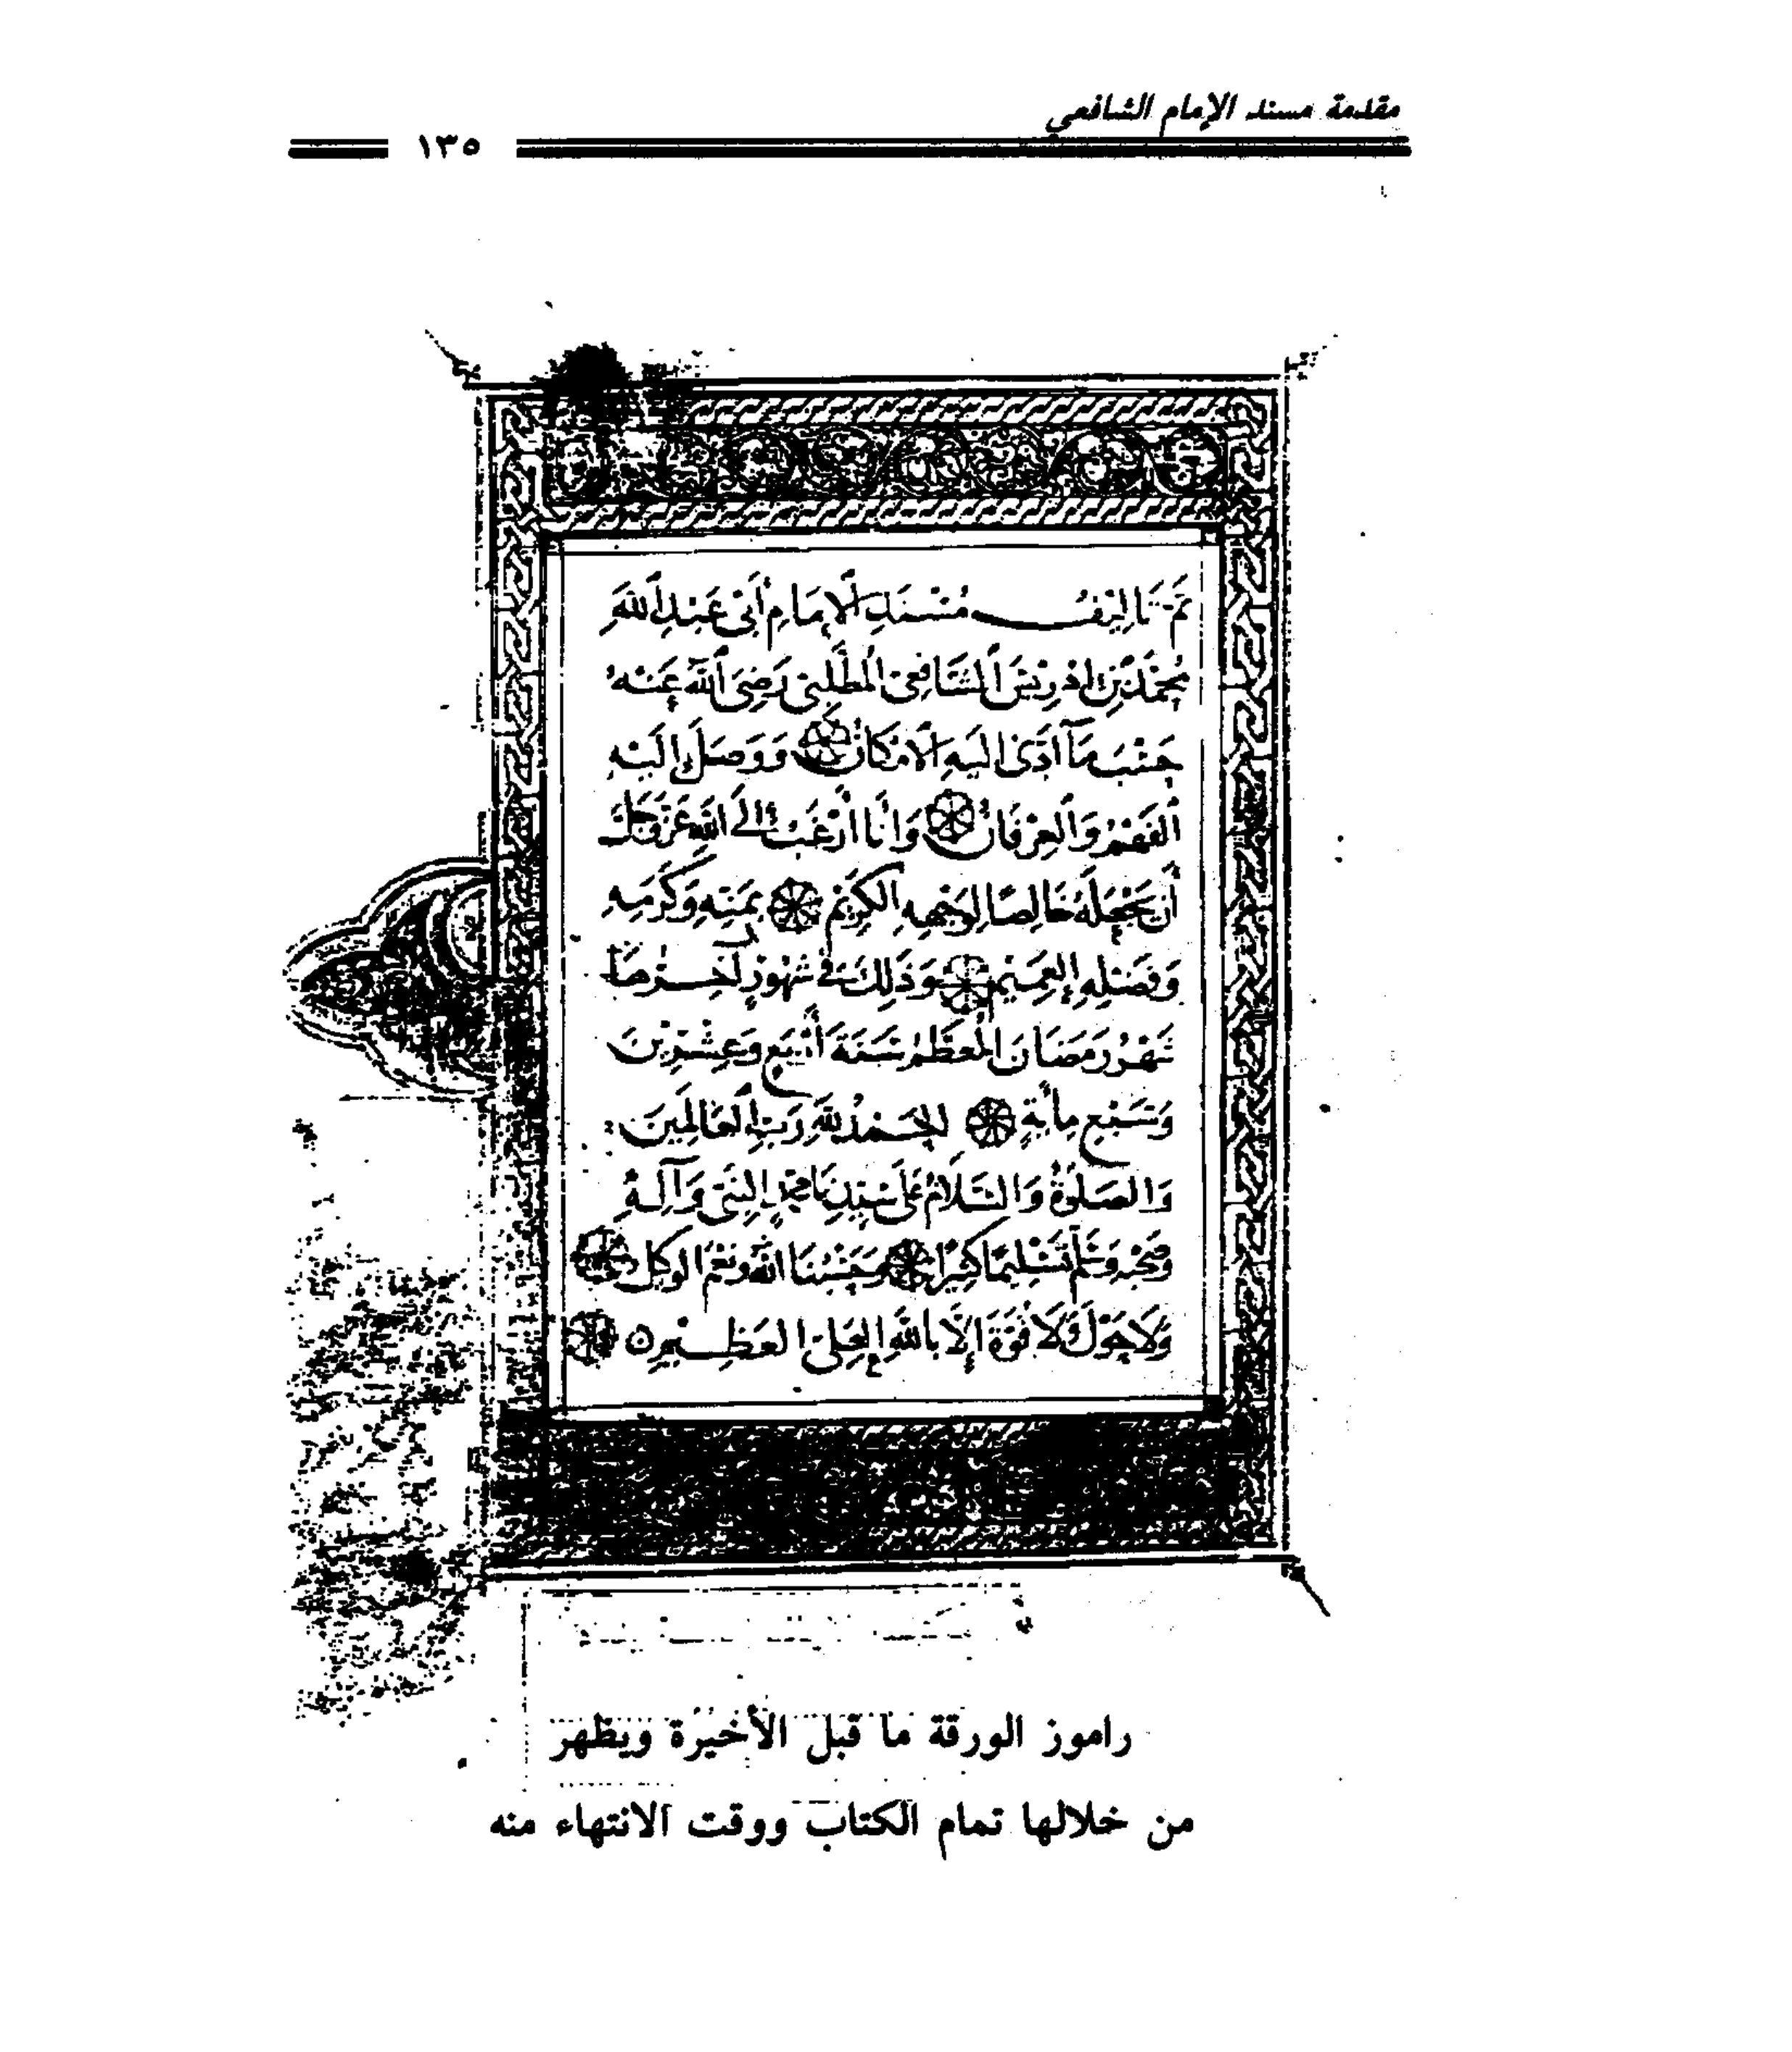 مقدمة مسند الإمام الشافعي
١٣٥
تَمَّ تَالِيْفُ مُسْنَدِ الْإِمَامِ أَبِي عَبْدِ اللَّهِ
مُحَمَّدِ بْنِ إِدْرِيْسَ الشَّافِعِيِّ الْمُطَّلِبِيِّ رَضِيَ اللَّهُ عَنْهُ
حَسْبَ مَآ أَدَّى إِلَيْهِ الْإِمْكَانُ وَوَصَلَ إِلَيْهِ
الْفَهْمُ وَالْعِرْفَانُ وَأَنَا أَرْغَبُ إِلَى اللَّهِ عَزَّ وَجَلَّ
أَنْ يَجْعَلَهُ خَالِصًا لِوَجْهِهِ الْكَرِيْمِ بِمَنِّهِ وَكَرَمِهِ
وَفَضْلِهِ الْعَمِيْمِ وَذَلِكَ فِي شُهُوْرٍ آخِرُهَا
شَهْرُ رَمَضَانَ الْمُعَظَّمُ سَنَةَ أَرْبَعٍ وَعِشْرِيْنَ
وَسَبْعِ مِائَةٍ الْحَمْدُ لِلَّهِ رَبِّ الْعَالَمِيْنَ
وَالصَّلَوةُ وَالسَّلَامُ عَلَى سَيِّدِنَا مُحَمَّدٍ النَّبِيِّ وَآلِهِ
وَصَحْبِهِ وَسَلَّمَ تَسْلِيْمًا كَثِيْرًا وَحَسْبُنَا اللَّهُ وَنِعْمَ الْوَكِيْلُ
وَلَا حَوْلَ وَلَا قُوَّةَ إِلَّا بِاللَّهِ الْعَلِيِّ الْعَظِيْمِ
راموز الورقة ما قبل الأخيرة ويظهر
من خلالها تمام الكتاب ووقت الانتهاء منه